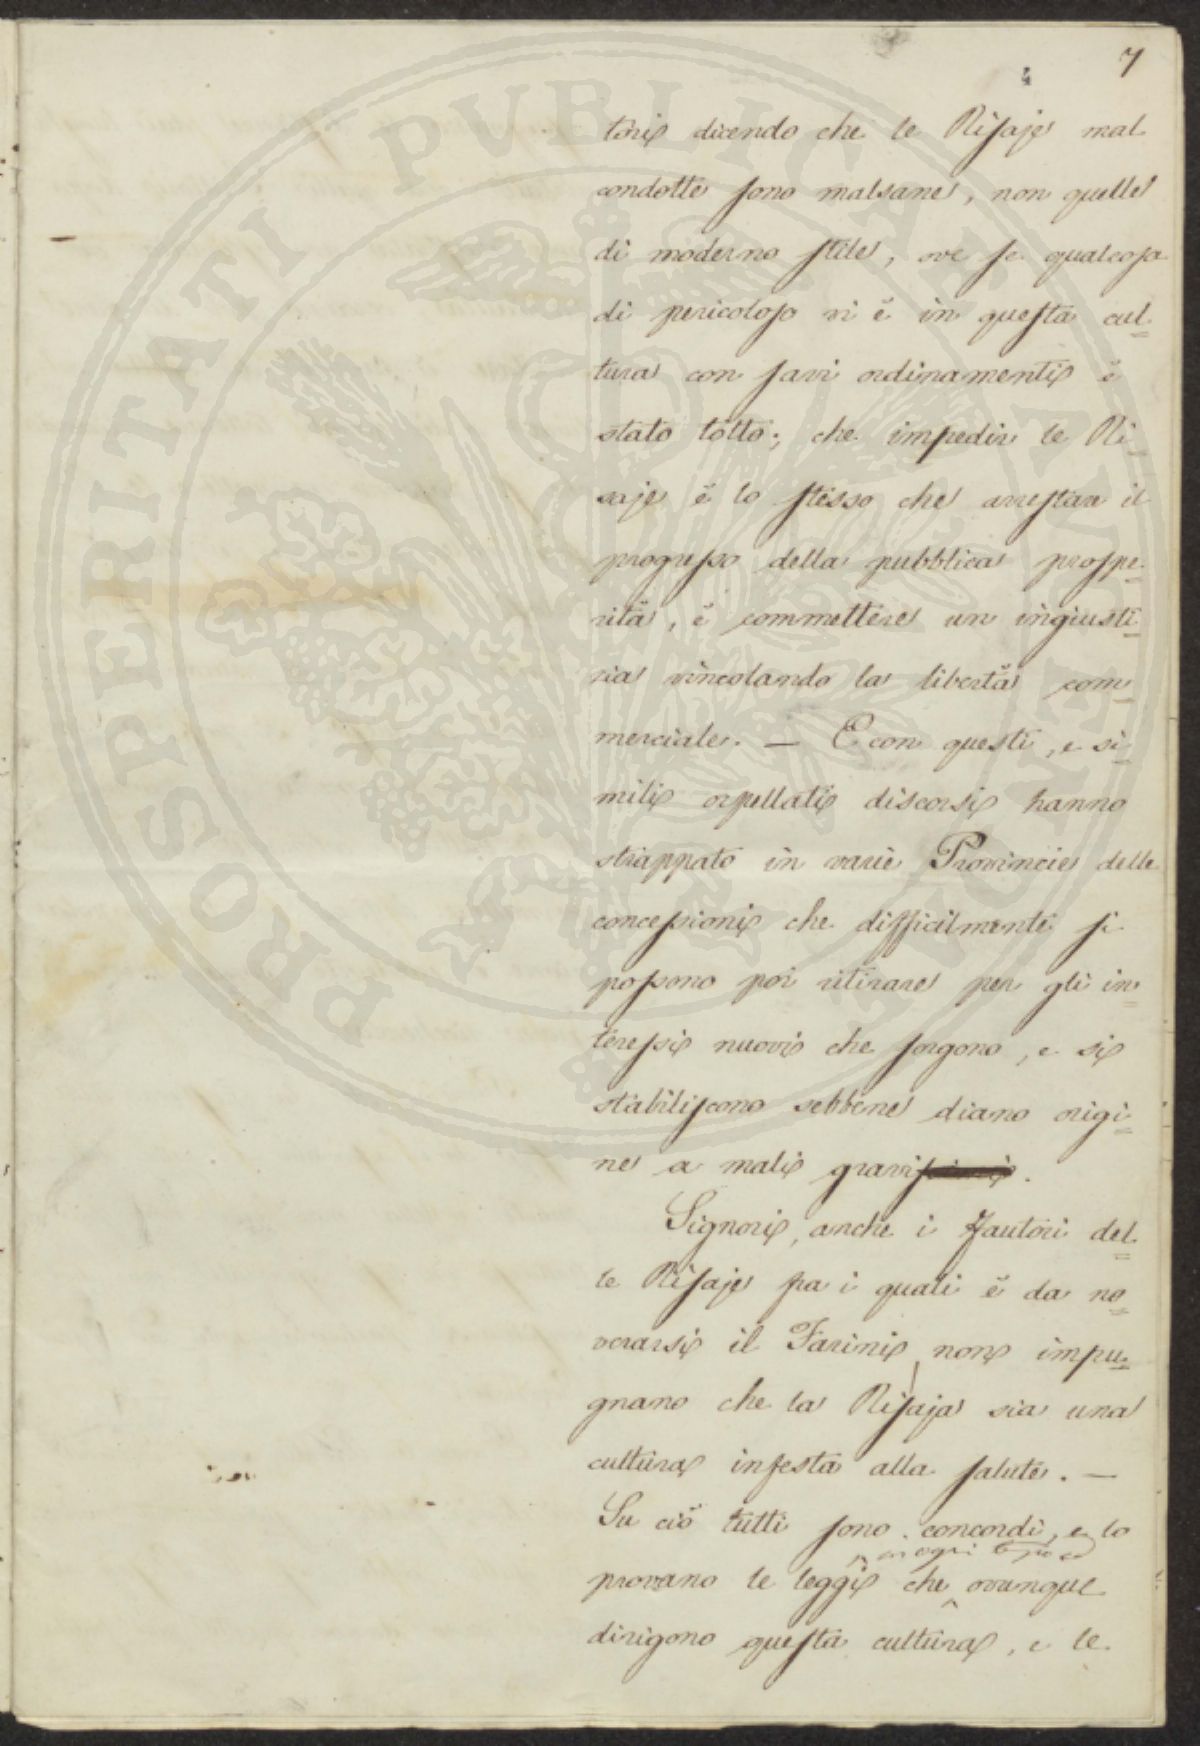 7
4
torj dicendo che le Risaje mal
condotte sono malsane, non quelle
di moderno stile, ove se qualcosa
di pericoloso vi è in questa cul=
tura con savi ordinamenti è
stato tolto; che impedir le Ri=
saje è lo stesso che arrestare il
progresso della pubblica prospe=
rità, è commettere un ingiusti=
zia vincolando la libertà com=
merciale. — E con questi, e si=
mili orpellati discorsi hanno
strappato in varie Provincie delle
concessioni che difficilmente si
possono poi ritirare per gli in=
teressi nuovi che sorgono, e si
stabiliscono sebbene diano origi=
ne a mali gravissimi.
Signori, anche i Fautori del=
le Risaje fra i quali è da no=
verarsi il Farini, non impu=
gnano che la Risaja sia una
cultura infesta alla salute. —
Su ciò tutti sono concordi, e lo
in ogni tempo ed
provano le leggi che ovunque
dirigono questa cultura, e le
PROSPERITATI PUBLICAE AUGENDAE